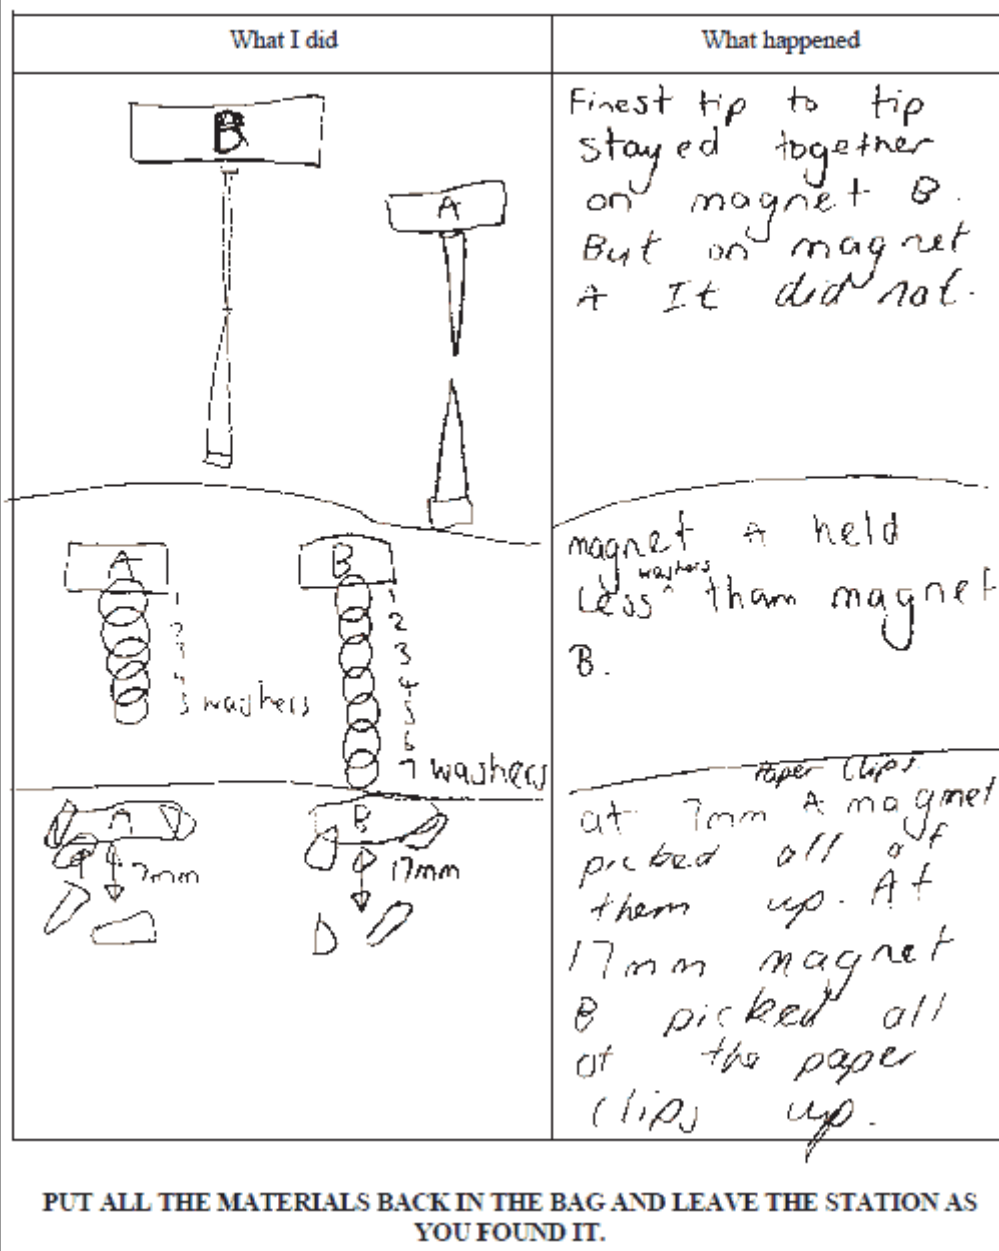 What I did
What happened
B
A
Finest tip to tip
stayed together
on magnet B.
But on magnet
A It did not.
A
1
2
3
4
5 washers
B
1
2
3
4
5
6
7 washers
magnet A held
Less washers tham magnet
B.
A
7mm
B
17mm
Paper Clips
at 7mm A magnet
picked all of
them up. At
17mm magnet
B picked all
of the paper
clips up.
PUT ALL THE MATERIALS BACK IN THE BAG AND LEAVE THE STATION AS
YOU FOUND IT.